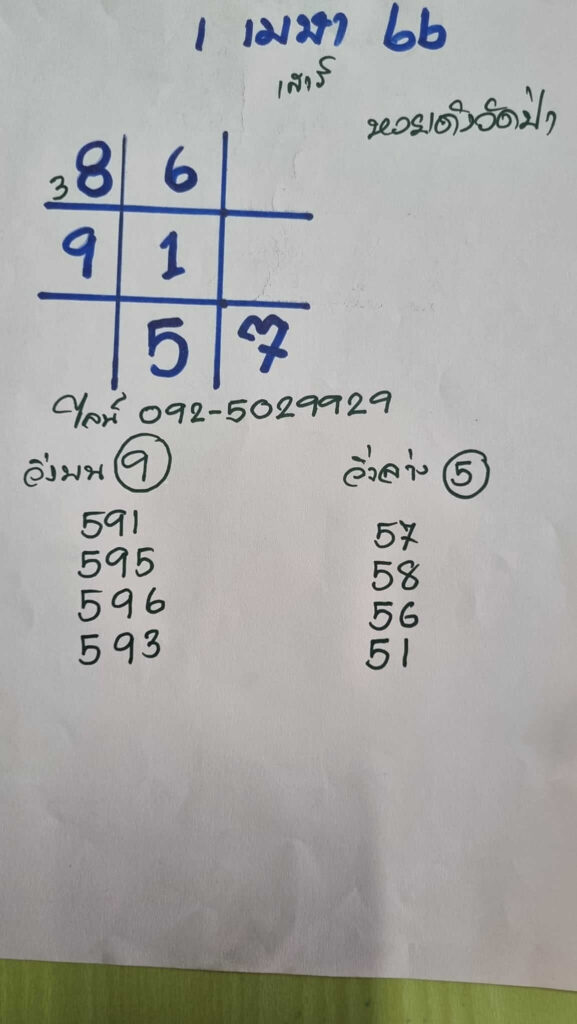 1 เมษา 66
เสาร์
หวยดังวัดป่า
3 8 6
9 1
5 7
ไลน์ 092-5029929
วิ่งบน 9
591
595
596
593
วิ่งล่าง 5
57
58
56
51